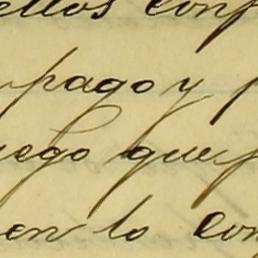 ellos conf
pago y p
uego que p
en lo con